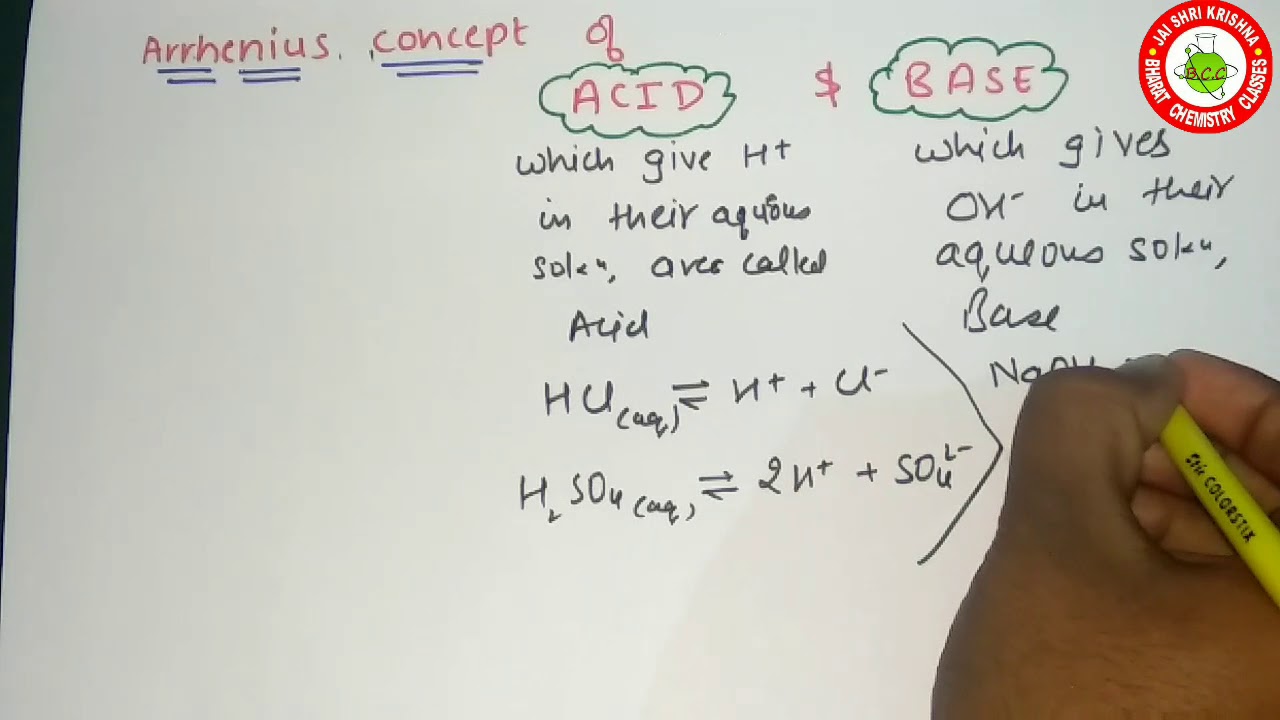 Arrhenius. concept of
ACID $ BASE
which give H+
in their aquous
soln, ares called
Acid
HCl(aq) ⇌ H+ + Cl-
H2SO4(aq) ⇌ 2H+ + SO4 2-
which gives
OH- in their
aqueous soln,
Base
NaOH
JAI SHRI KRISHNA
B.C.C
BHARAT CHEMISTRY CLASSES
Stic COLORSTIX